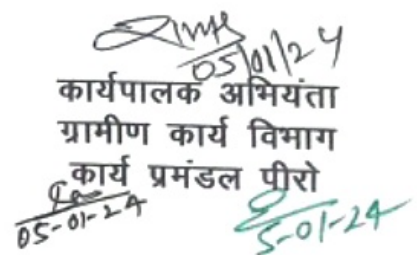 05/01/24
कार्यपालक अभियंता
ग्रामीण कार्य विभाग
कार्य प्रमंडल पीरो
05-01-24
5-01-24